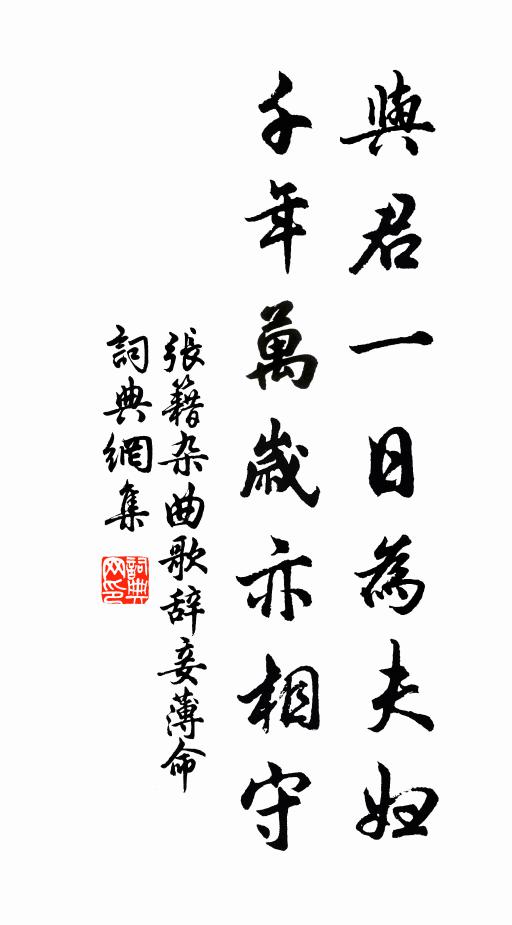 與君一日為夫婦
千年萬歲亦相守
張籍杂曲歌辞妾薄命
詞典網集
詞典网印